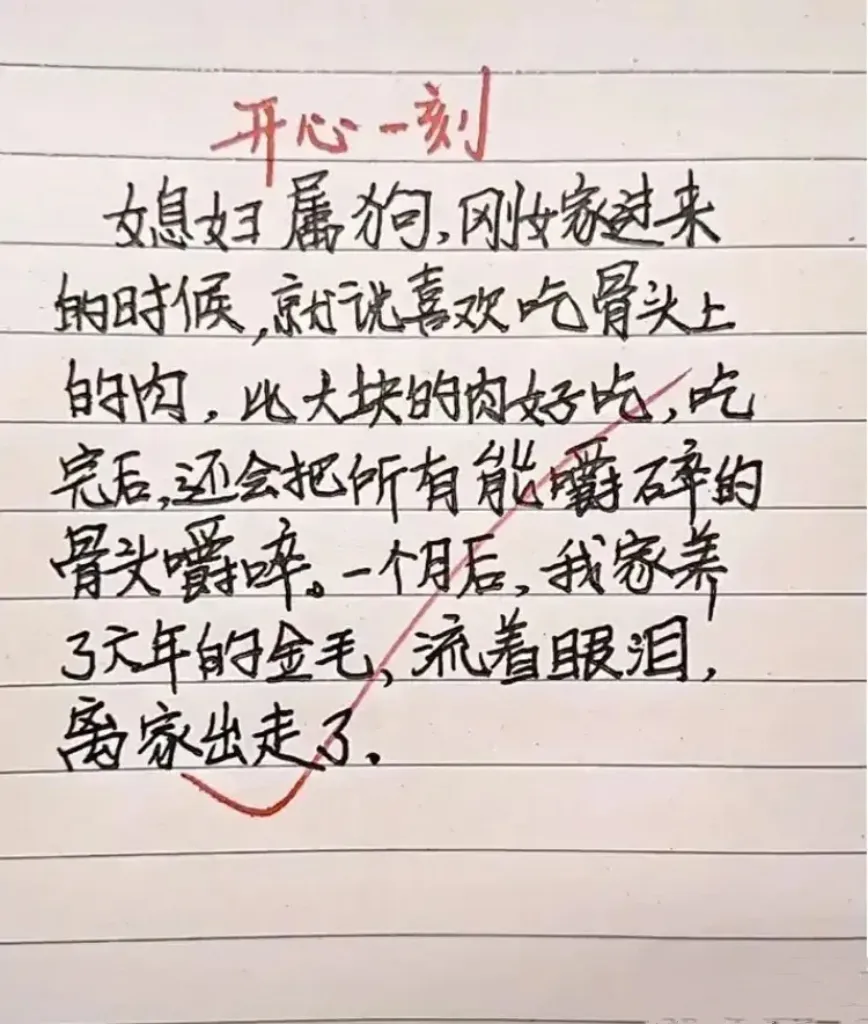 开心一刻
媳妇属狗,刚嫁进来
的时候,就说喜欢吃骨头上
的肉,比大块的肉好吃,吃
完后,还会把所有能嚼碎的
骨头嚼碎。一个月后,我家养
了六年的金毛,流着眼泪,
离家出走了.